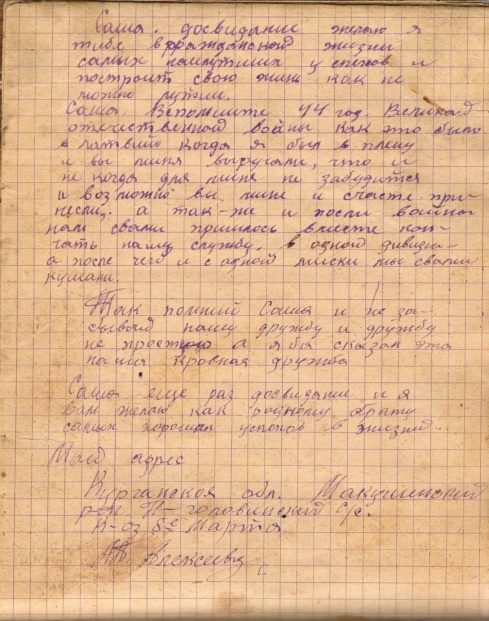 Саша. досвидание желаю я
тибе в гражданской жизни
самых наилутших успехов и
построит свою жизн как не
можно лутши.
Саша Вспомните 44 год. Великой
отечественной войны как это было
в латвии когда я был в плену
и вы миня выручали, что и
не когда для миня не забудится
и возможно вы мине и счасте при-
несли. а так-же и посли войны
нам свами пришлось вместе кон-
чать нашу службу. в одной дивизи-
а после чего и с одной миски мы свами
кушали.
Так помний Саша и не за-
бывай нашу дружбу и дружбу
не простую а я бы сказал эта
наша кровная дружба
Саша еще раз досвидании и я
вам желаю как родному брату
самых хороших успехов в жизни.
Мой адрес
Курганская обл. Макушинский
р-он головинский с/с.
К-оз 8е Марта
Алексеев